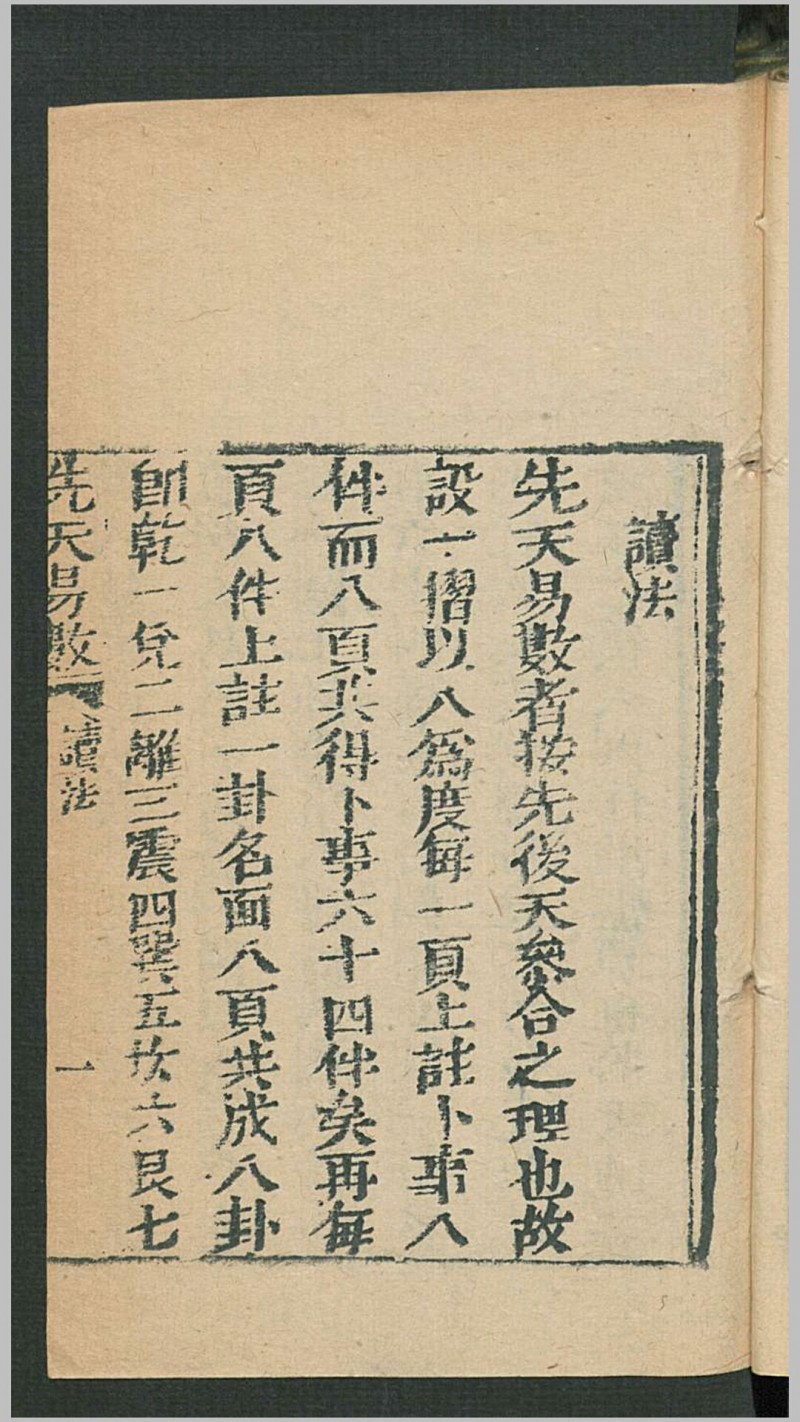 讀法
先天易數者按先後天參合之理也故
設一摺以八爲度每一頁上註卜事八
件而八頁共得卜事六十四件矣再每
頁八件上註一卦名面八頁共成八卦
卽乾一兌二離三震四巽五坎六艮七
先天易數 讀法 一